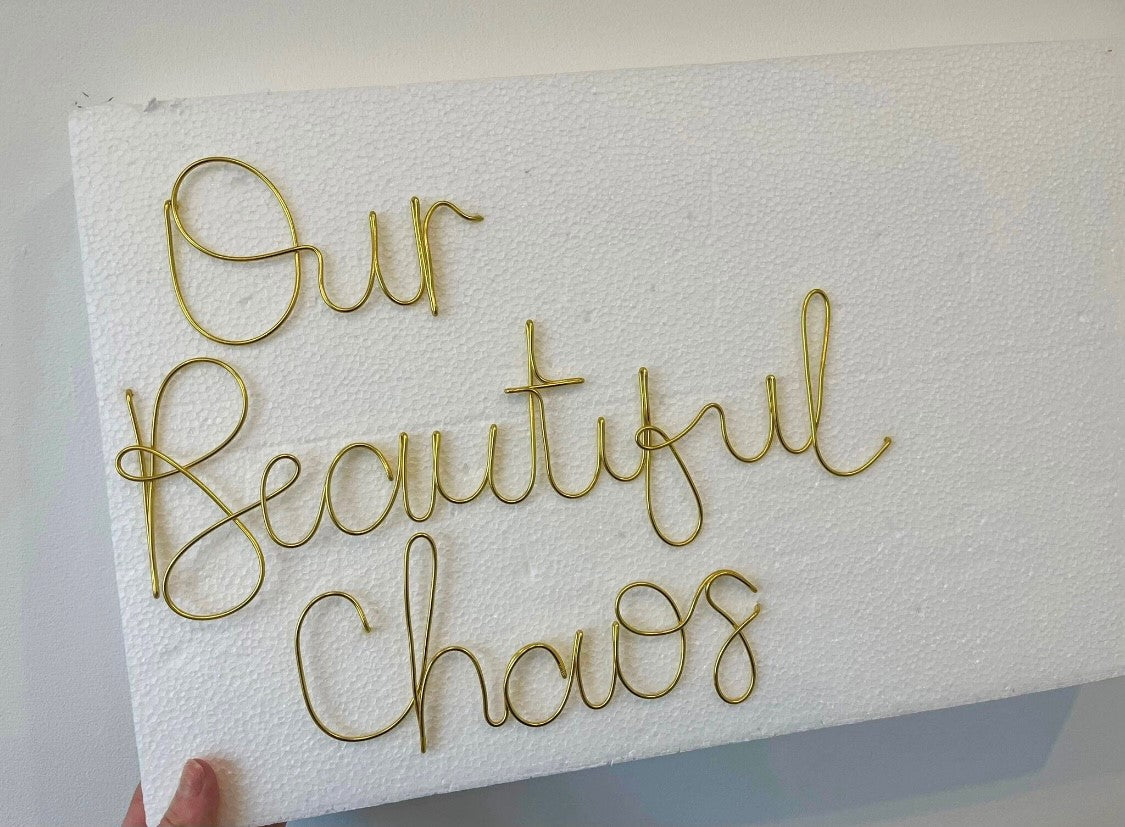 Our
Beautiful
Chaos